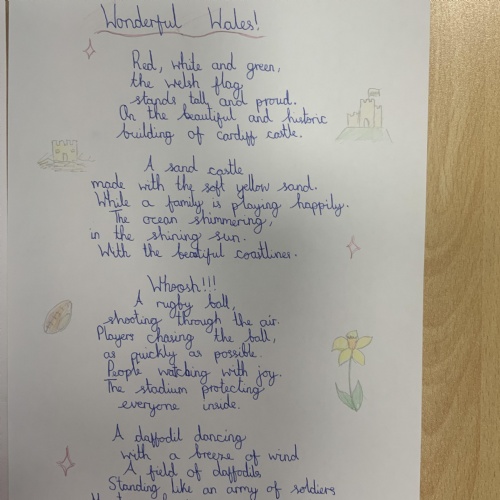 Wonderful Wales!
Red, white and green,
the welsh flag
stands tall and proud.
On the beautiful and historic
building of cardiff castle.
A sand castle
made with the soft yellow sand.
While a family is playing happily.
The ocean shimmering,
in the shining sun.
With the beatiful coastlines.
Whoosh!!!
A rugby ball,
shooting through the air.
Players chasing the ball,
as quickly as possible.
People watching with joy.
The stadium protecting
everyone inside.
A daffodil dancing
with a breeze of wind
A field of daffodils
Standing like an army of soldiers